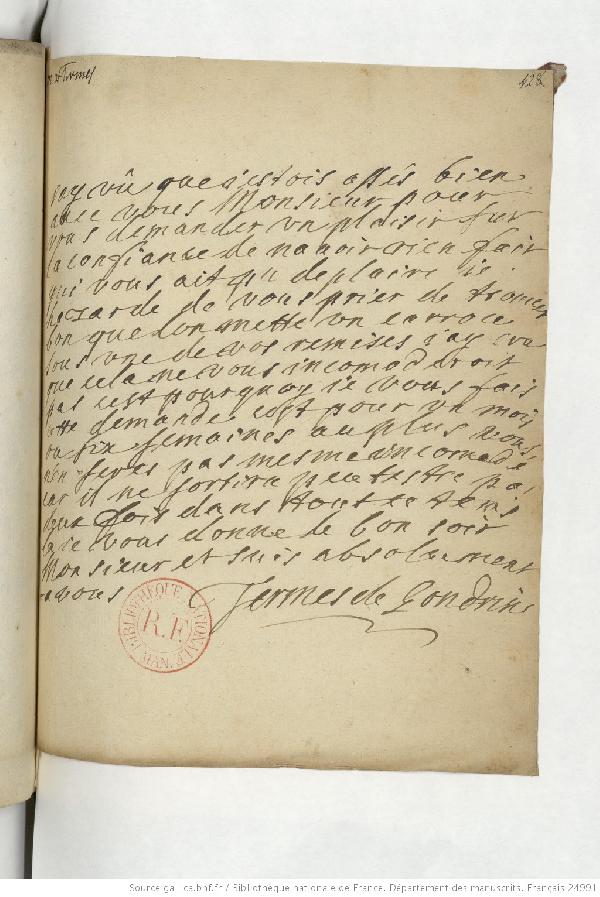 de Termes
428
j'ay vû que j'estois assés bien
avec vous Monsieur pour
vous demander un plaisir sur
la confiance de n'avoir rien fait
qui vous ait pu deplaire je
hezarde de vous prier de trouver
bon que l'on mette un carroce
sous une de vos remises j'ay cru
que cela ne vous incomoderoit
pas c'est pourquoy je vous fais
cette demande c'est pour un mois
ou six semaines au plus vous
n'en serés pas mesme incomodé
car il ne sortira peutestre pas
deux fois dans tout ce tems
la je vous donne le bon soir
Monsieur et suis absolument
a vous
Termes de Gondrin
BIBLIOTHÈQUE NATIONALE
R.F.
MAN.
Source gallica.bnf.fr / Bibliothèque nationale de France. Département des manuscrits. Français 24991